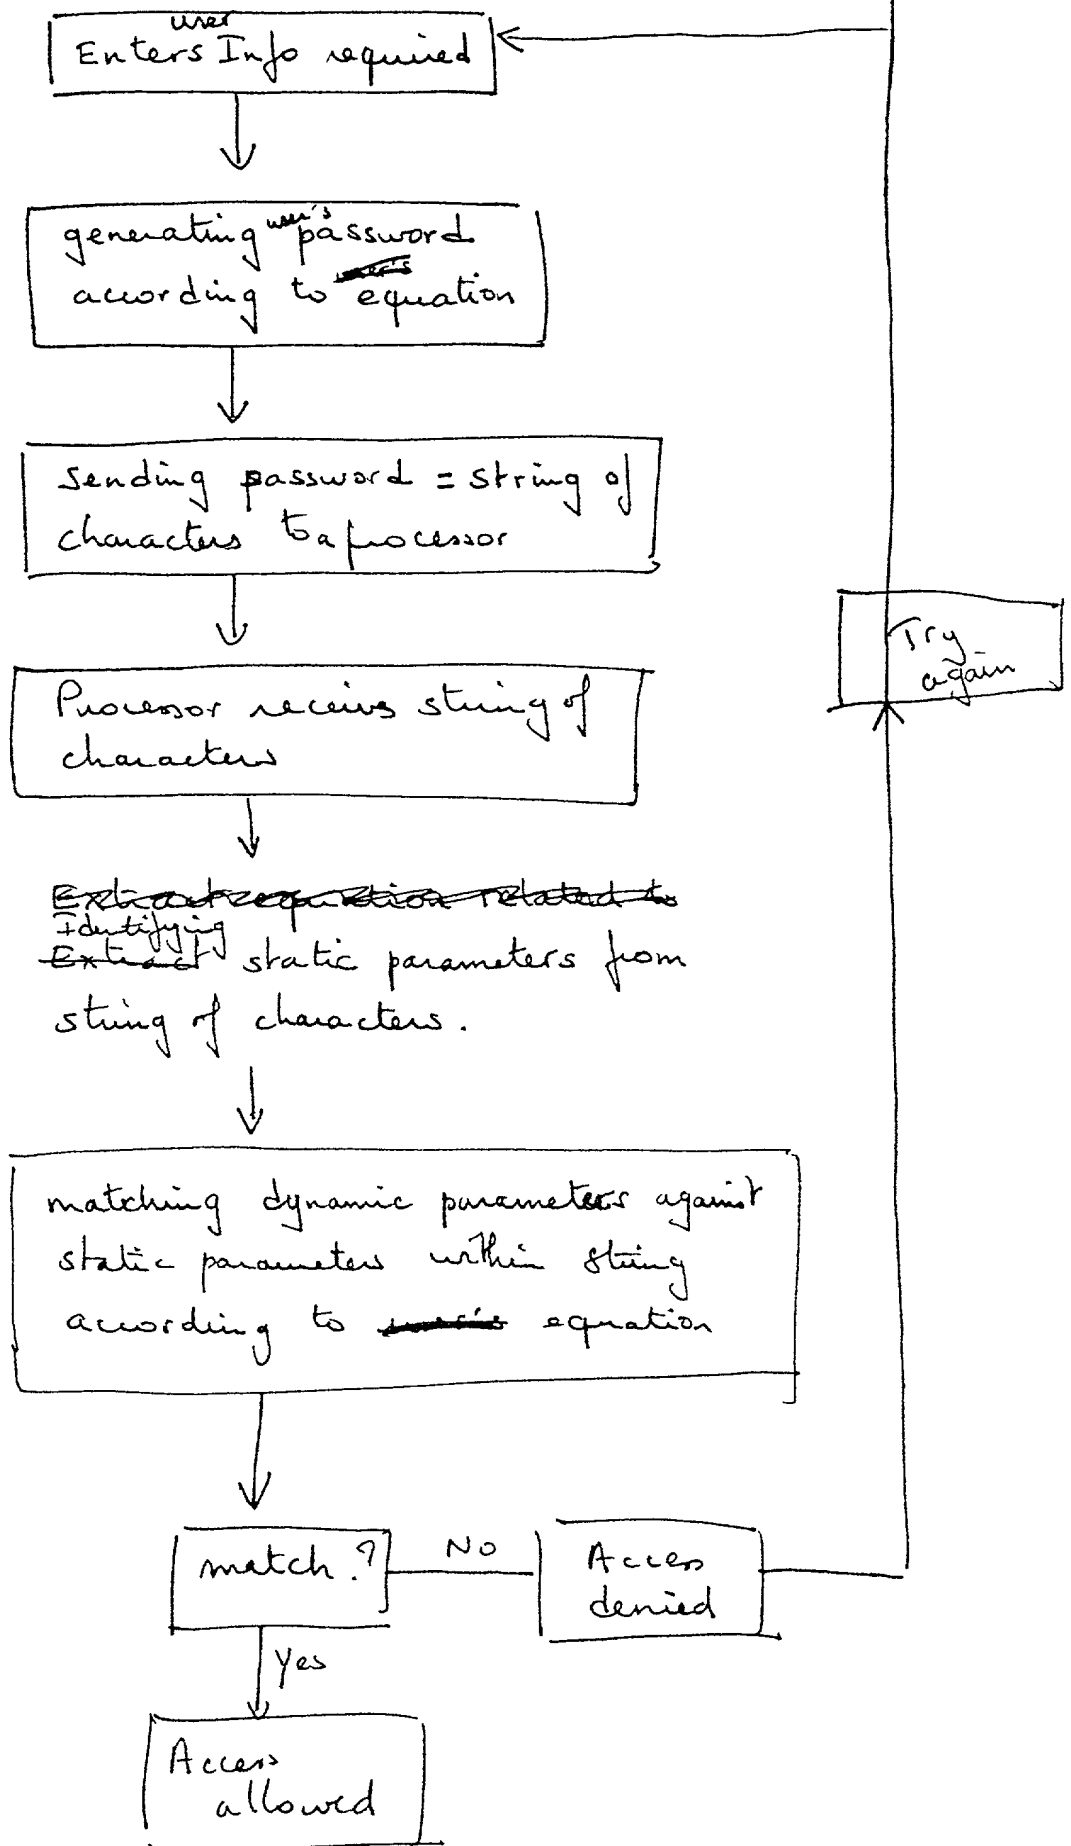 user
Enters Info required
generating user's password
according to user's equation
sending password = string of
characters to a processor
Processor receives string of
characters
Try
again
Extract equation related to
Identifying
Extract static parameters from
string of characters.
matching dynamic parameters against
static parameters within string
according to user's equation
match?
No
Access
denied
Yes
Access
allowed